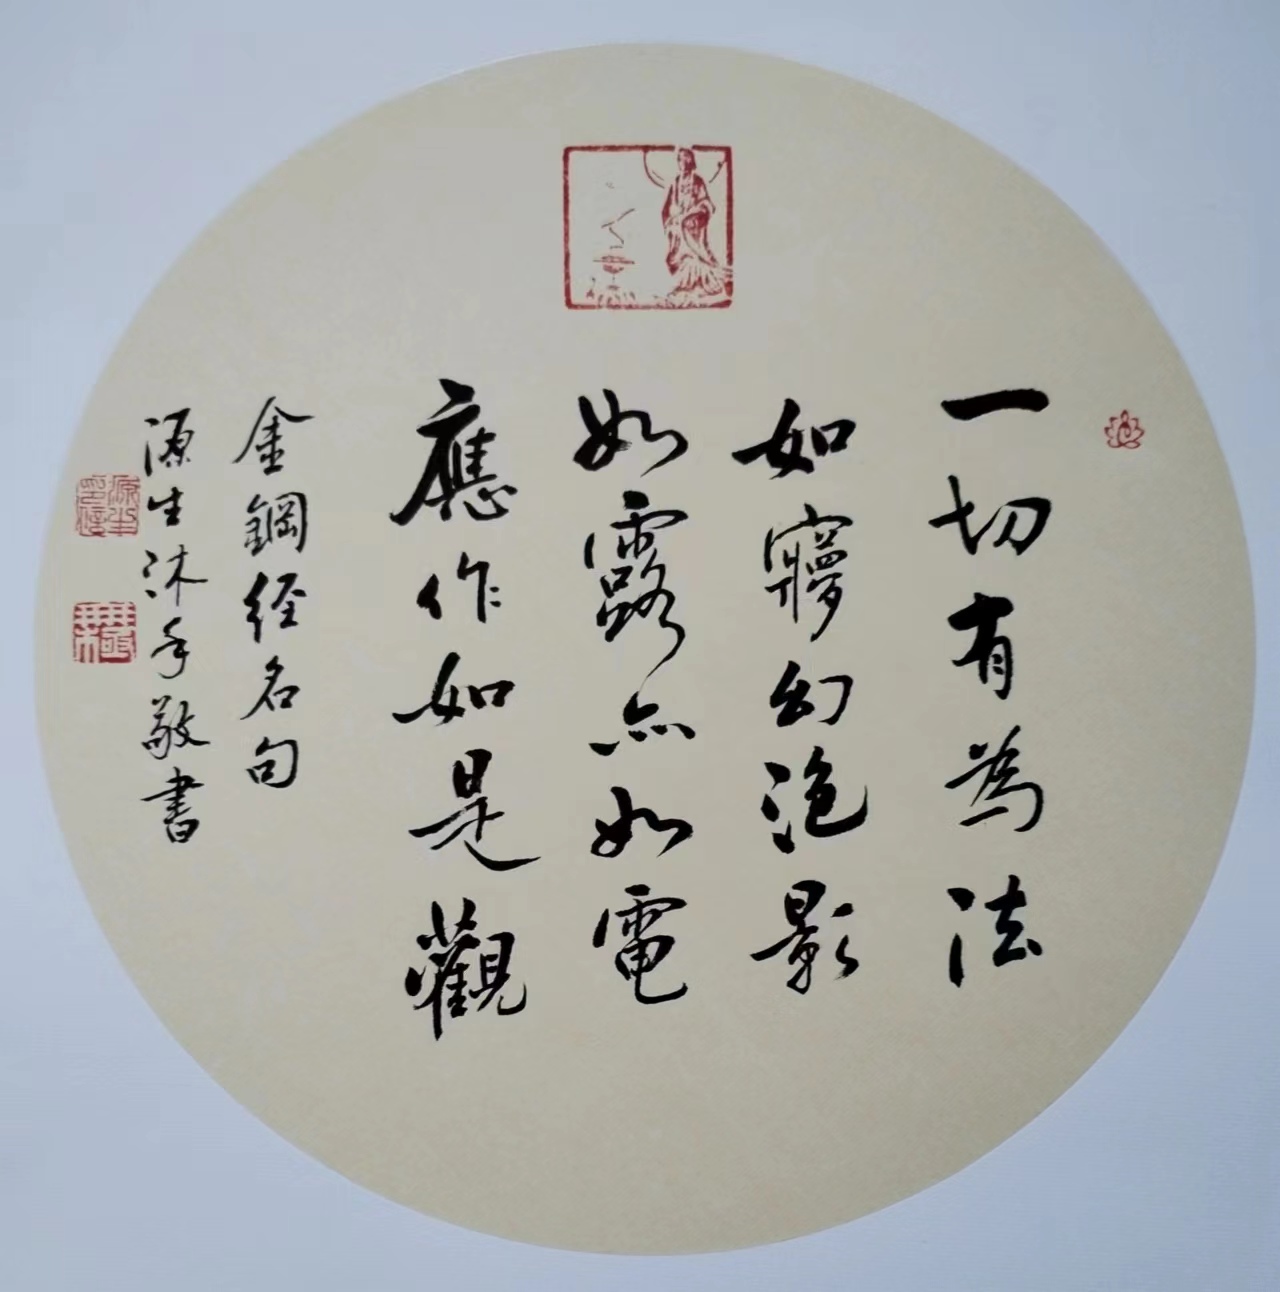 一切有為法
如寢幻泡影
如露亦如電
應作如是觀
金鋼经名句
源生沐手敬書